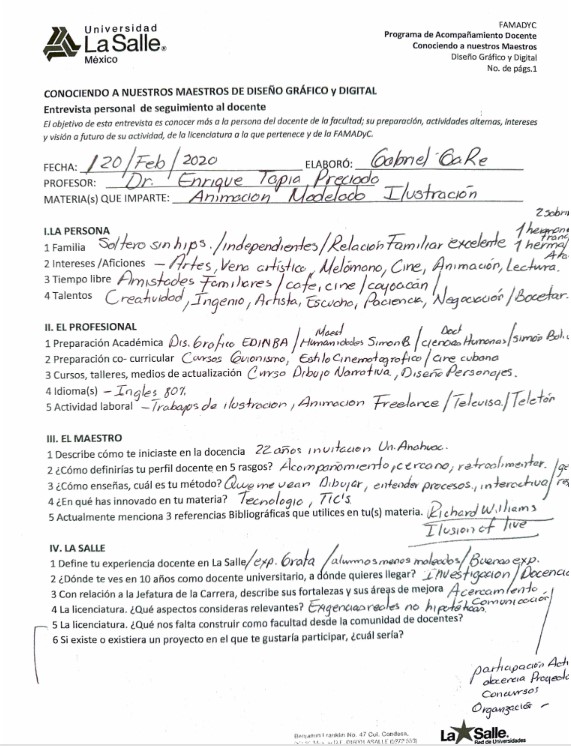 Universidad
La Salle®
México
FAMADYC
Programa de Acompañamiento Docente
Conociendo a nuestros Maestros
Diseño Gráfico y Digital
No. de págs.1
CONOCIENDO A NUESTROS MAESTROS DE DISEÑO GRÁFICO y DIGITAL
Entrevista personal de seguimiento al docente
El objetivo de esta entrevista es conocer más a la persona del docente de la facultad; su preparación, actividades alternas, intereses
y visión a futuro de su actividad, de la licenciatura a la que pertenece y de la FAMADyC.
FECHA: /20/Feb/2020 ELABORÓ: Gabriel GaRe
PROFESOR: Dr. Enrique Tapia Preciado
MATERIA(S) QUE IMPARTE: Animacion Modelado Ilustración
I.LA PERSONA
1 Familia Soltero sin hijos./Independientes/Relación Familiar excelente
2 Intereses /Aficiones – Artes, Vena artístico, Melómono, Cine, Animación, Lectura.
3 Tiempo libre Amistades Familiares/café, cine/coyoacán/
4 Talentos Creatividad, Ingenio, Artista, Escucho, Paciencia, Negociación/Bocetar.
II. EL PROFESIONAL
Maest Doct
1 Preparación Académica Dis. Grafico EDINBA /Humanidades SimonB /ciencias Humanas/simón
2 Preparación co- curricular Cursos Guionismo, Estilo Cinematografico/cine cubano
3 Cursos, talleres, medios de actualización Curso Dibujo Narrativa, Diseño Personajes.
4 Idioma(s) – Ingles 80%
5 Actividad laboral – Trabajos de ilustracion, Animacion Freelance/Televisa/Teletón
III. EL MAESTRO
1 Describe cómo te iniciaste en la docencia 22 años invitacion Un. Anahuac.
2 ¿Cómo definirías tu perfil docente en 5 rasgos? Acompañamiento, cercano, retroalimentar.
3 ¿Cómo enseñas, cuál es tu método? Que me vean Dibujar, entender procesos, interactivo
4 ¿En qué has innovado en tu materia? Tecnologia, TIC's.
5 Actualmente menciona 3 referencias Bibliográficas que utilices en tu(s) materia. Richard Williams
Ilusion of live
IV. LA SALLE
1 Define tu experiencia docente en La Salle /exp. Grata /alumnos menos maleados/Buena exp.
2 ¿Dónde te ves en 10 años como docente universitario, a dónde quieres llegar? Investigacion/Docencia
3 Con relación a la Jefatura de la Carrera, describe sus fortalezas y sus áreas de mejora Acercamiento
Comunicación
4 La licenciatura. ¿Qué aspectos consideras relevantes? Exigencias reales no hipotéticas.
5 La licenciatura. ¿Qué nos falta construir como facultad desde la comunidad de docentes?
6 Si existe o existiera un proyecto en el que te gustaría participar, ¿cuál sería?
participación
docencia
Concursos
Organización –
Benjamín Franklin No. 47 Col. Condesa,
La Salle.
Red de Universidades